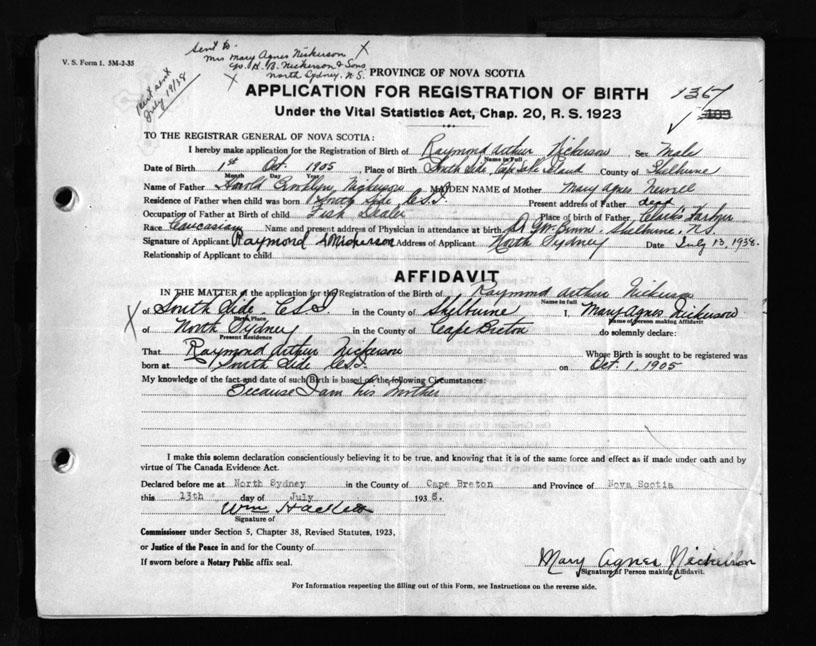 Sent to
Mrs Mary Agnes Nickerson X
V. S. Form 1. 5M-2-35
c/o. H. B. Nickerson & Sons
X North Sydney, N.S.
PROVINCE OF NOVA SCOTIA
sent July 19/38
APPLICATION FOR REGISTRATION OF BIRTH
Under the Vital Statistics Act, Chap. 20, R. S. 1923
TO THE REGISTRAR GENERAL OF NOVA SCOTIA:
I hereby make application for the Registration of Birth of Raymond Arthur Nickerson, Sex Male
Name in Full
Date of Birth 1st Oct. 1905, Place of Birth South Side, Cape Sable Island County of Shelburne
Month Day Year
Name of Father Harold Nickerson MAIDEN NAME of Mother Mary Agnes Newell
Residence of Father when child was born South Side C.S.I. Present address of Father dead
Occupation of Father at Birth of child Fish Dealer Place of birth of Father, Clark's Harbor
Race Caucasian Name and present address of Physician in attendance at birth Shelburne, N.S.
Signature of Applicant Raymond Nickerson Address of Applicant North Sydney Date July 13, 1938.
Relationship of Applicant to child
AFFIDAVIT
IN THE MATTER of the application for the Registration of the Birth of Raymond Arthur Nickerson
Name in full
X of South Side, C.S.I. in the County of Shelburne I, Mary Agnes Nickerson
Birth Place Name of person making Affidavit
of North Sydney in the County of Cape Breton do solemnly declare:
Present Residence
That Raymond Arthur Nickerson Whose Birth is sought to be registered was
born at South Side, C.S.I. on Oct. 1, 1905
My knowledge of the fact and date of such Birth is based on the following Circumstances:
Because I am his mother
I make this solemn declaration conscientiously believing it to be true, and knowing that it is of the same force and effect as if made under oath and by
virtue of The Canada Evidence Act.
Declared before me at North Sydney in the County of Cape Breton and Province of Nova Scotia
this 13th day of July 1938.
Wm Hackett
Signature of
Commissioner under Section 5, Chapter 38, Revised Statutes, 1923,
or Justice of the Peace in and for the County of
If sworn before a Notary Public affix seal.
Mary Agnes Nickerson
Signature of Person making Affidavit.
For Information respecting the filling out of this Form, see Instructions on the reverse side.